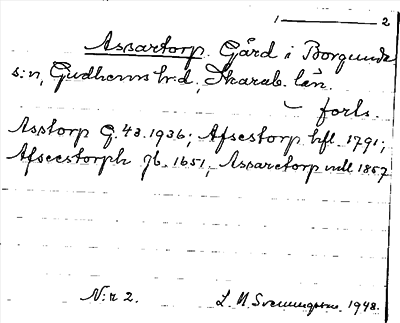 1 ——— 2
Assartorp. Gård i Borgunda
s:n, Gudhems hrd, Skarab. län.
forts.
Asstorp G. 43. 1936; Afsestorp hfl. 1791;
Afseestorph jb. 1651; Assaretorp vdl 1857
N:r 2. L. N. Svenungsson. 1948.